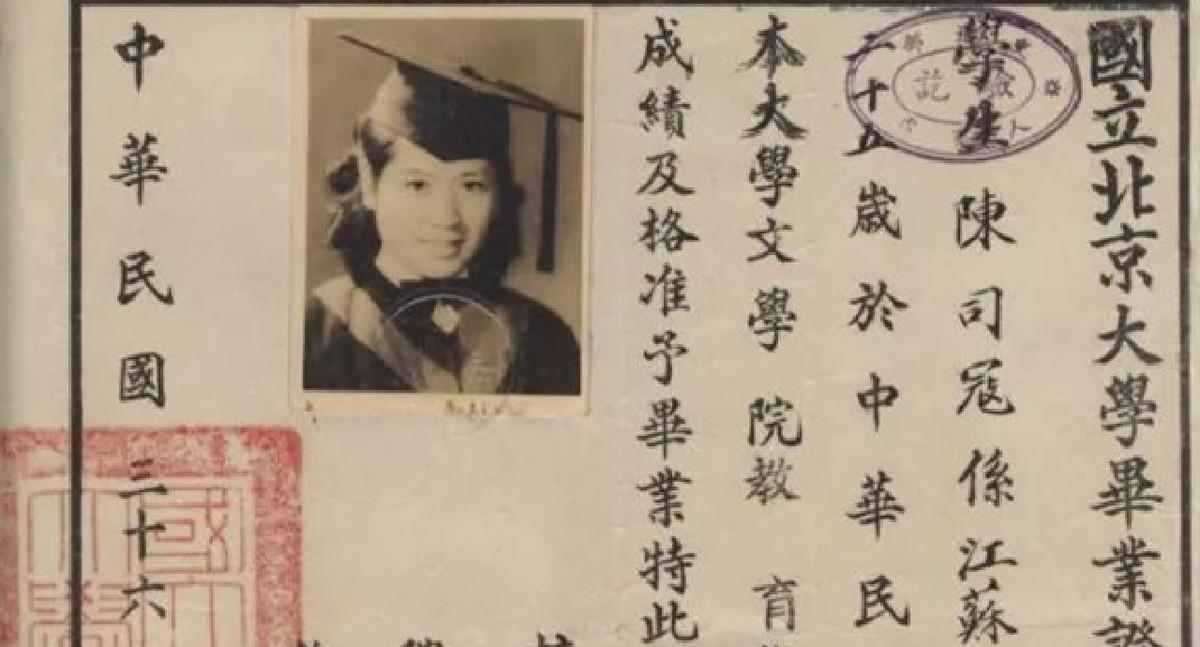 國立北京大學畢業證
學生陳司寇係江蘇
二十五歲於中華民
本大學文學院教育
成績及格准予畢業特此
中華民國三十六